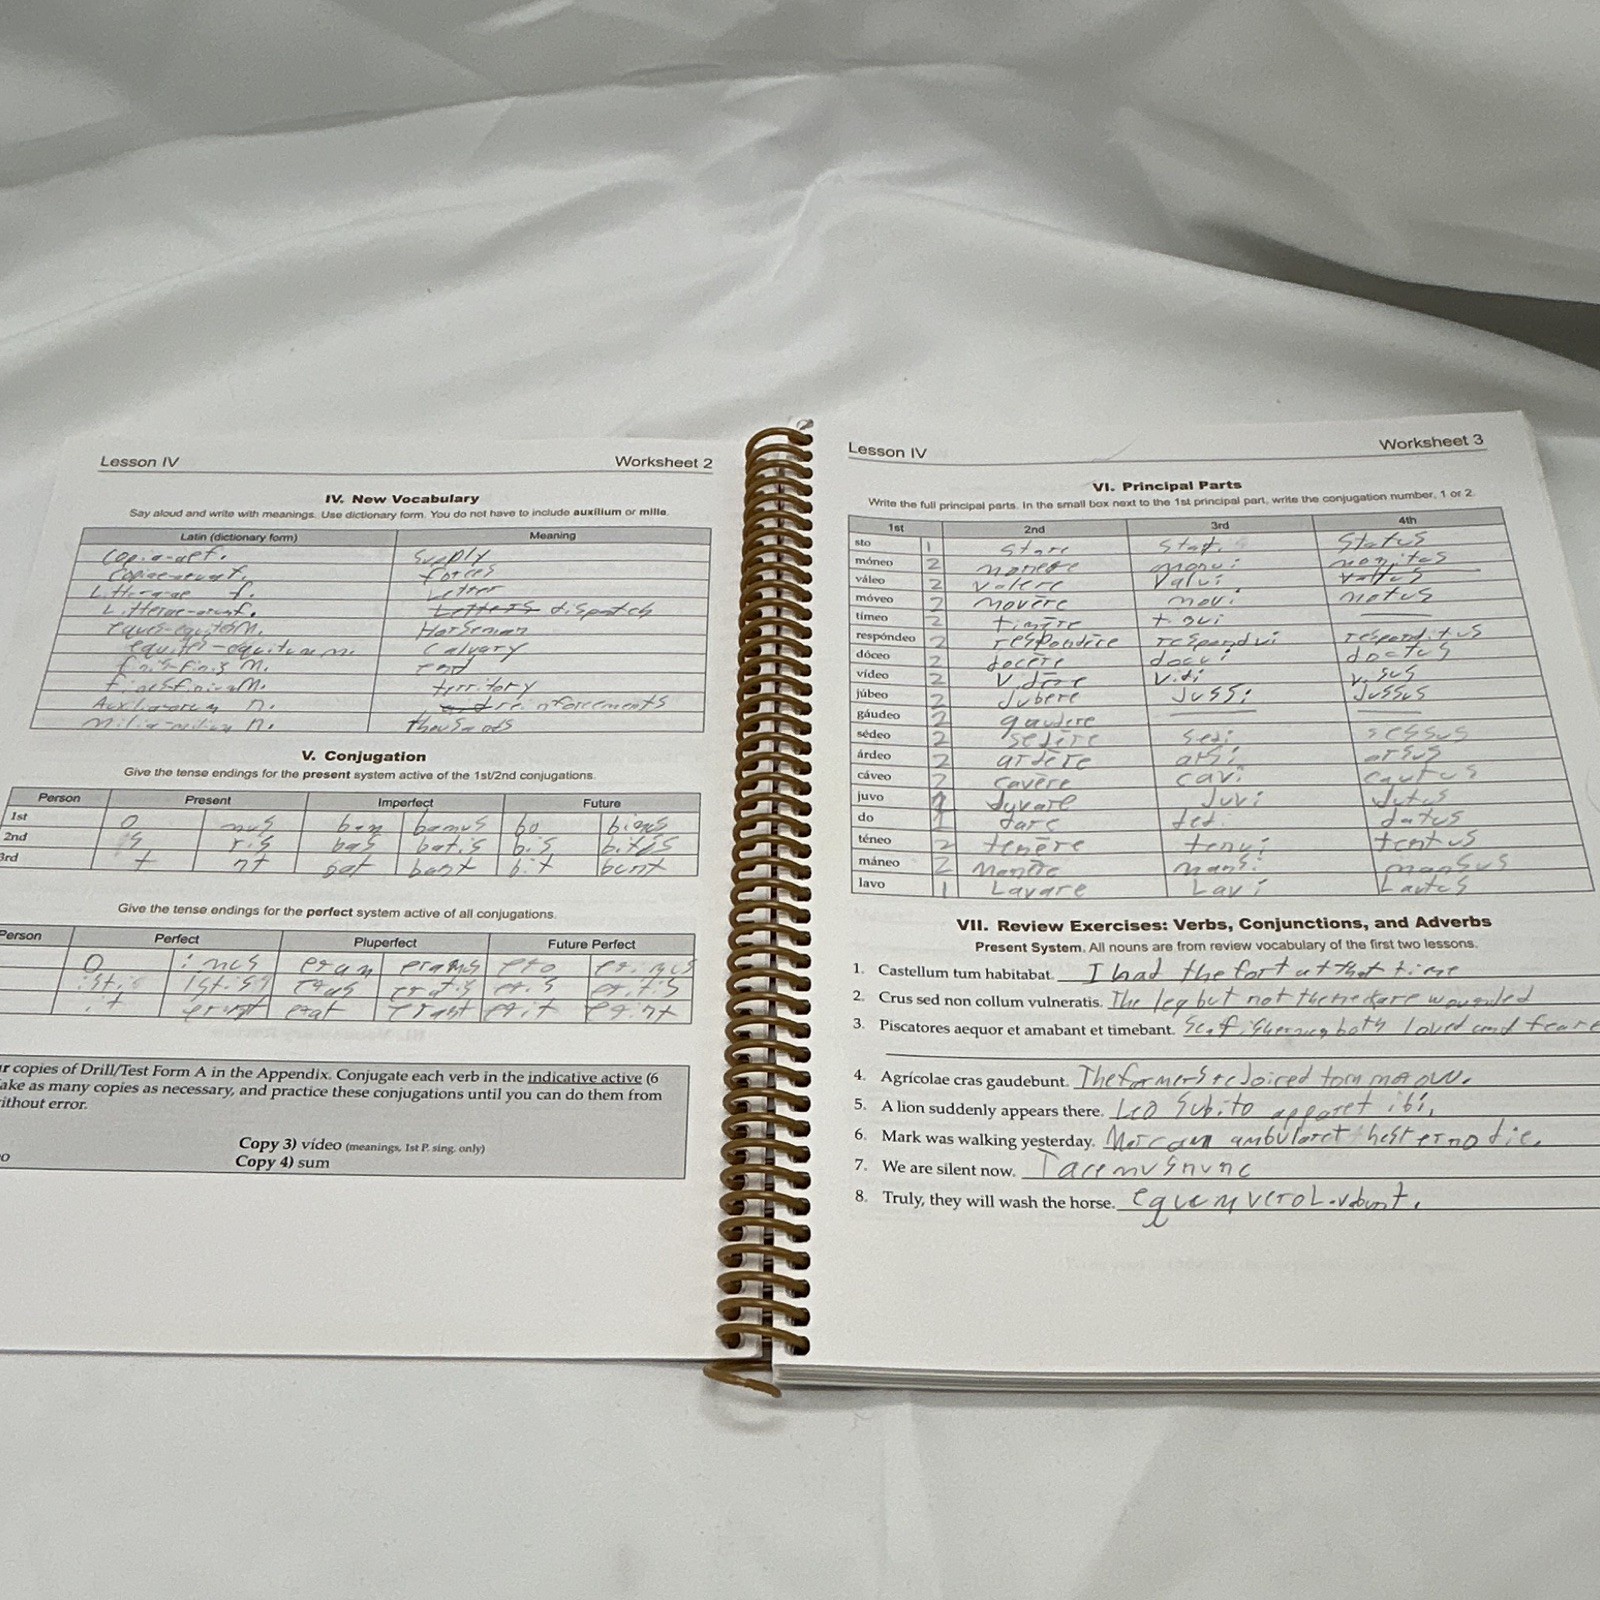 Lesson IV Worksheet 2
IV. New Vocabulary
Say aloud and write with meanings. Use dictionary form. You do not have to include auxilium or mille.
Latin (dictionary form) Meaning
Copia-ae f. Supply
forces
Letter
Letters dispatch
Horseman
Calvary
end
territory
n. reinforcements
n. thousands
V. Conjugation
Give the tense endings for the present system active of the 1st/2nd conjugations.
Person Present Imperfect Future
1st O mus bam bamus bo bimus
2nd s tis bas batis bis bitis
3rd t nt bat bant bit bunt
Give the tense endings for the perfect system active of all conjugations.
Person Perfect Pluperfect Future Perfect
imus eram eramus ero erimus
eras eratis eris eritis
it erunt erat erant erit erint
ur copies of Drill/Test Form A in the Appendix. Conjugate each verb in the indicative active (6
ake as many copies as necessary, and practice these conjugations until you can do them from
ithout error.
Copy 3) vídeo (meanings, 1st P. sing. only)
o Copy 4) sum
Lesson IV Worksheet 3
VI. Principal Parts
Write the full principal parts. In the small box next to the 1st principal part, write the conjugation number, 1 or 2.
1st 2nd 3rd 4th
sto 1 stare status
móneo 2 monere monui monitus
váleo 2 valere valui
móveo 2 movēre movi motus
tímeo 2 timēre
respóndeo 2 respondēre respondui responditus
dóceo 2 docēre docui doctus
vídeo 2 vidēre vidi visus
júbeo 2 jubere jussi jussus
gáudeo 2 gaudere
sédeo 2 sedēre sedi sessus
árdeo 2 ardēre arsi arsus
cáveo 2 cavēre cavi cautus
juvo 1 juvare juvi jutus
do 1 dare dedi datus
téneo 2 tenēre tenui tentus
máneo 2 mansi mansus
lavo 1 Lavare Lavi Lautus
VII. Review Exercises: Verbs, Conjunctions, and Adverbs
Present System. All nouns are from review vocabulary of the first two lessons.
1. Castellum tum habitabat. I had the fort at that time
2. Crus sed non collum vulneratis. The leg but not the neck are wounded
3. Piscatores aequor et amabant et timebant. both loved and feare
4. Agrícolae cras gaudebunt. The farmers rejoiced tommaow.
5. A lion suddenly appears there. Leo subito apparet ibi.
6. Mark was walking yesterday. ambularet hesterno die.
7. We are silent now. Tacemus nunc
8. Truly, they will wash the horse. equum vero Lavabunt.